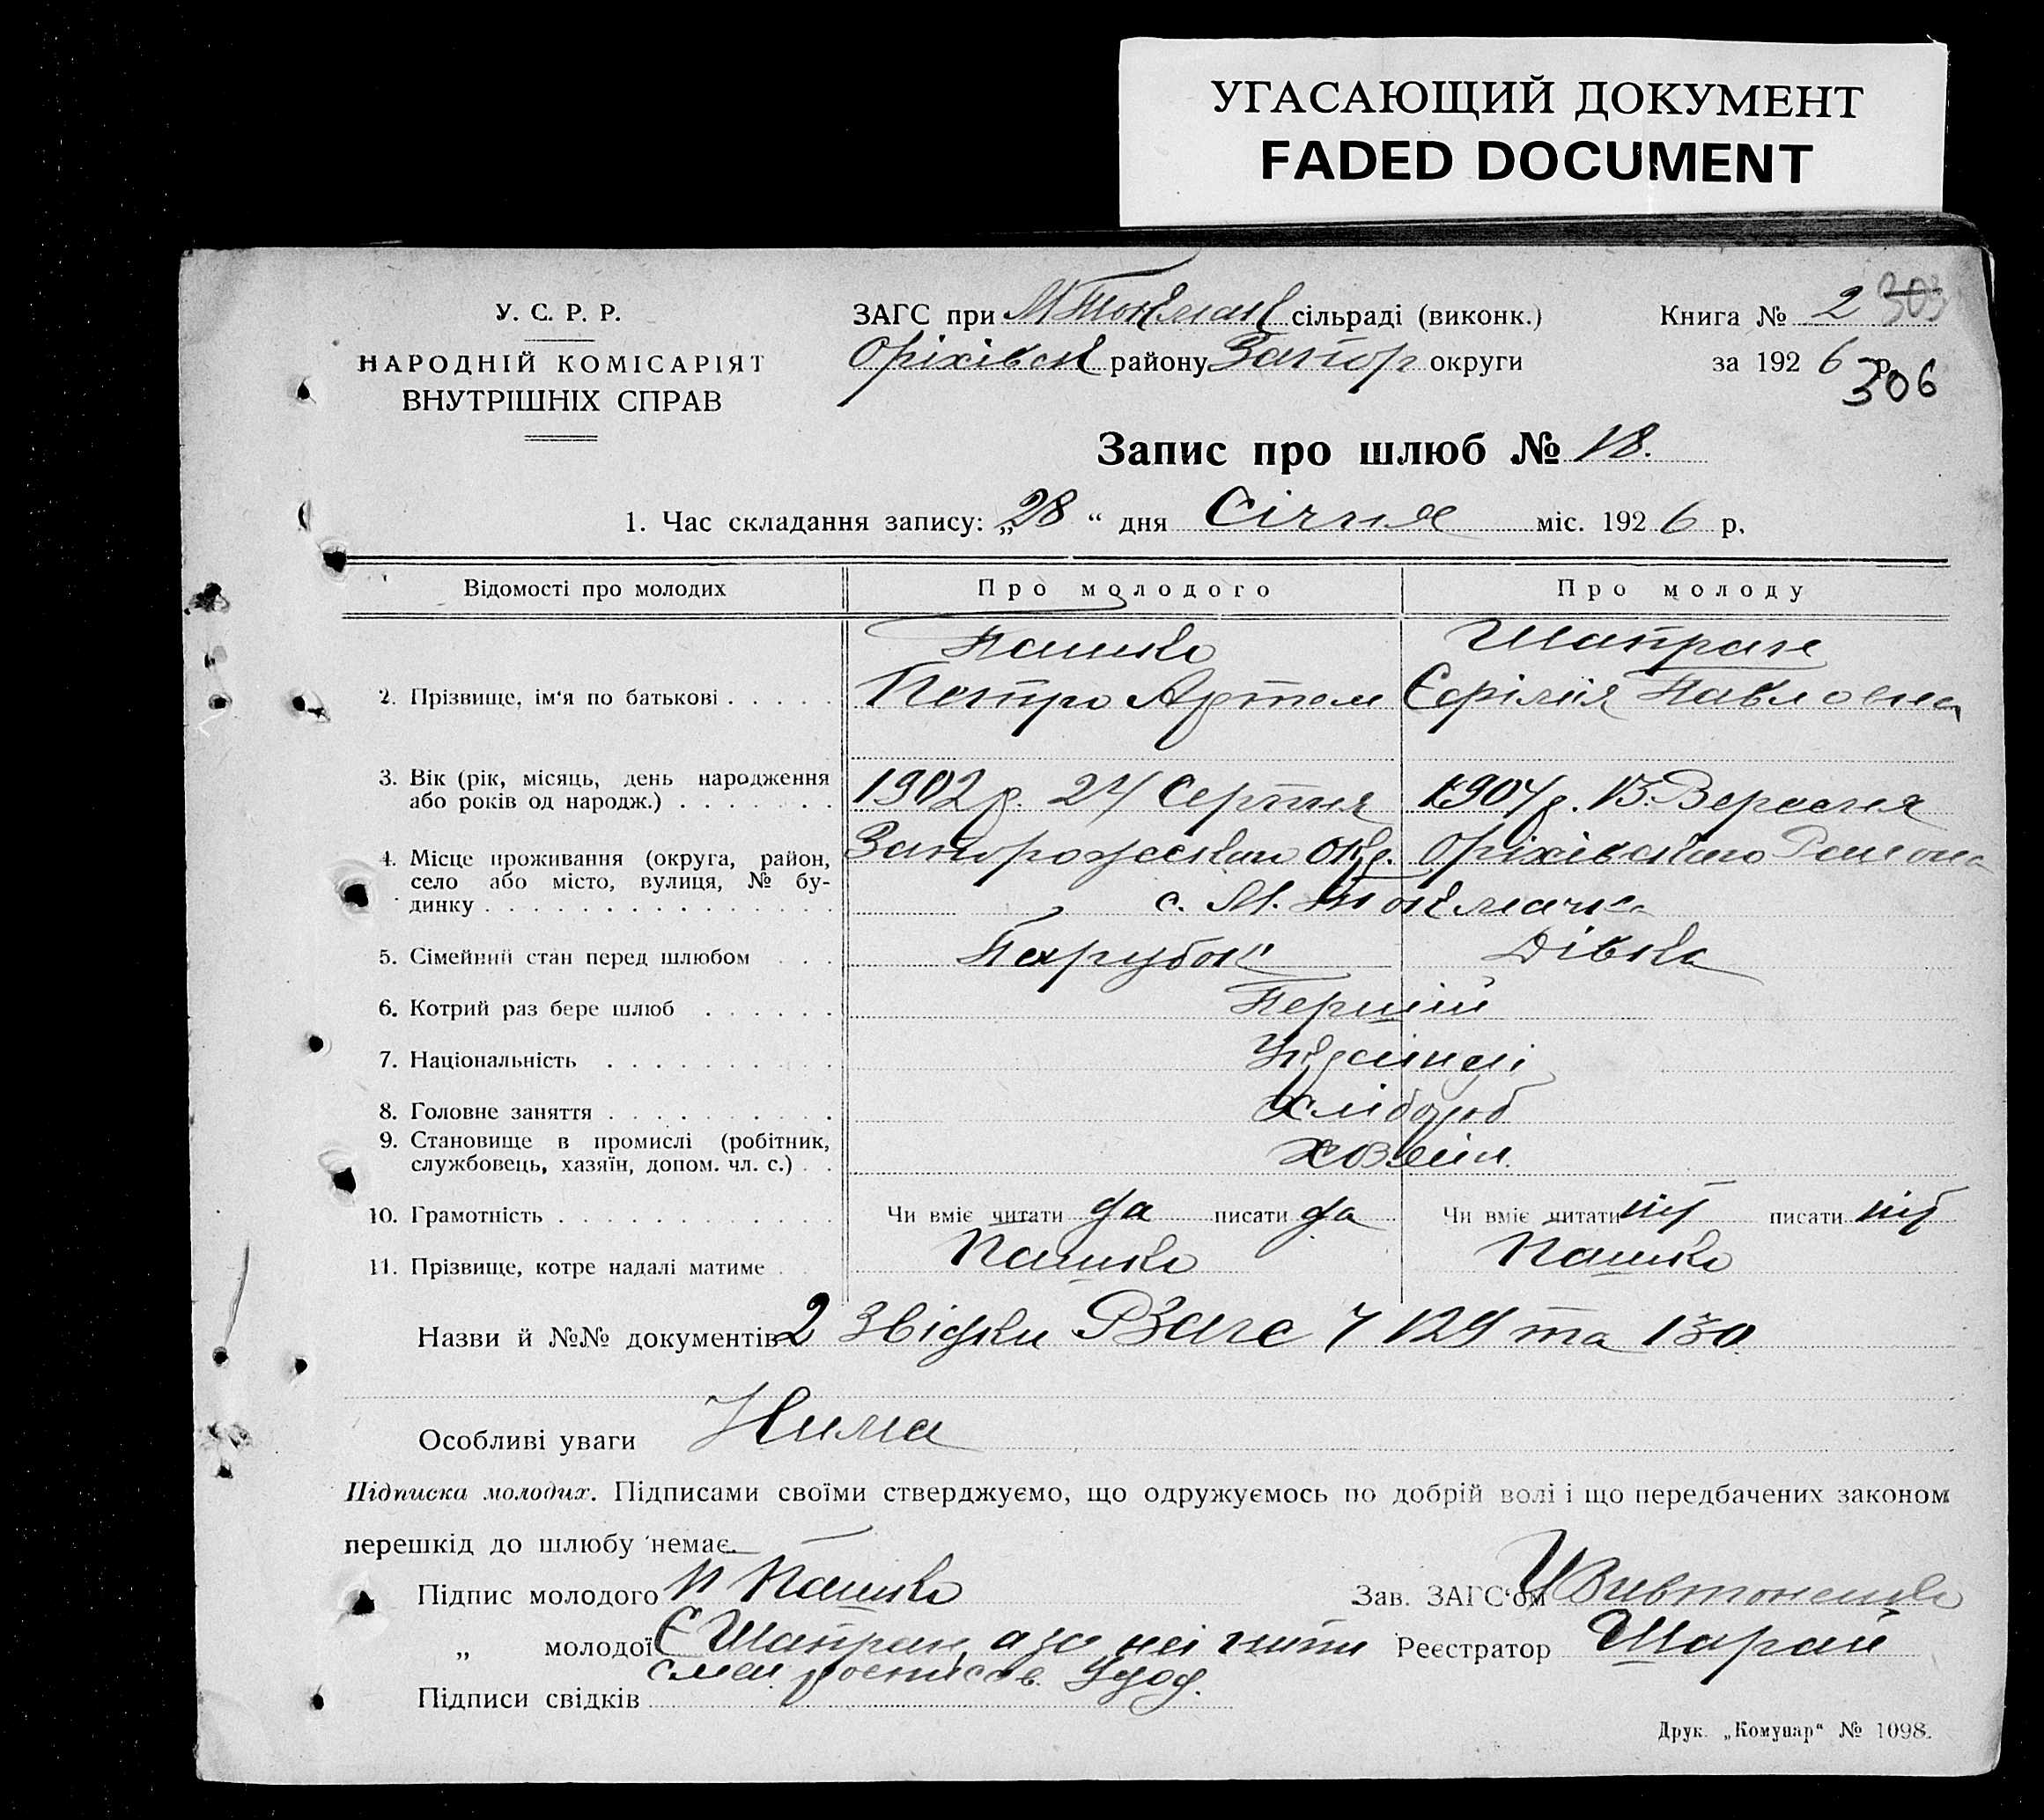 УГАСАЮЩИЙ ДОКУМЕНТ
FADED DOCUMENT
У. С. Р. Р.
НАРОДНІЙ КОМІСАРІЯТ
ВНУТРІШНІХ СПРАВ
ЗАГС при М Токмац сільраді (виконк.)
Оріхівск району Запор округи
Книга № 2 303
за 192 6 р.
306
Запис про шлюб № 18.
1. Час складання запису: „28“ дня Січня міс. 192 6 р.
Відомості про молодих Про молодого Про молоду
Пашко Шапран
2. Прізвище, ім'я по батькові Петро Артем Єфілія Павловна
3. Вік (рік, місяць, день народження 1902 р. 24 Серпня 1904 р. 13 Вересня
або років од народж.)
4. Місце проживання (округа, район, Запорожсскаго окр. Оріхівскаго Раиона
село або місто, вулиця, № бу-
динку с. М. Токмачка
5. Сімейний стан перед шлюбом Парубок Дівка
6. Котрий раз бере шлюб Перший
7. Національність Українці
8. Головне заняття Хлібороб
9. Становище в промислі (робітник, Хозяин.
службовець, хазяїн, допом. чл. с.)
10. Грамотність Чи вміє читати да писати да Чи вміє читати ніт писати ніт
11. Прізвище, котре надалі матиме Пашко Пашко
Назви й №№ документів 2 Звідки РЗагс 129 та 130
Особливі уваги Нима
Підписка молодих. Підписами своїми стверджуємо, що одружуємось по добрій волі і що передбачених законом
перешкід до шлюбу немає.
Підпис молодого П Пашко Зав. ЗАГС'ом
„ молодої Є Шапран, а за неі Реєстратор Шарай
росписав. Удод.
Підписи свідків
Друк. „Комунар“ № 1098.